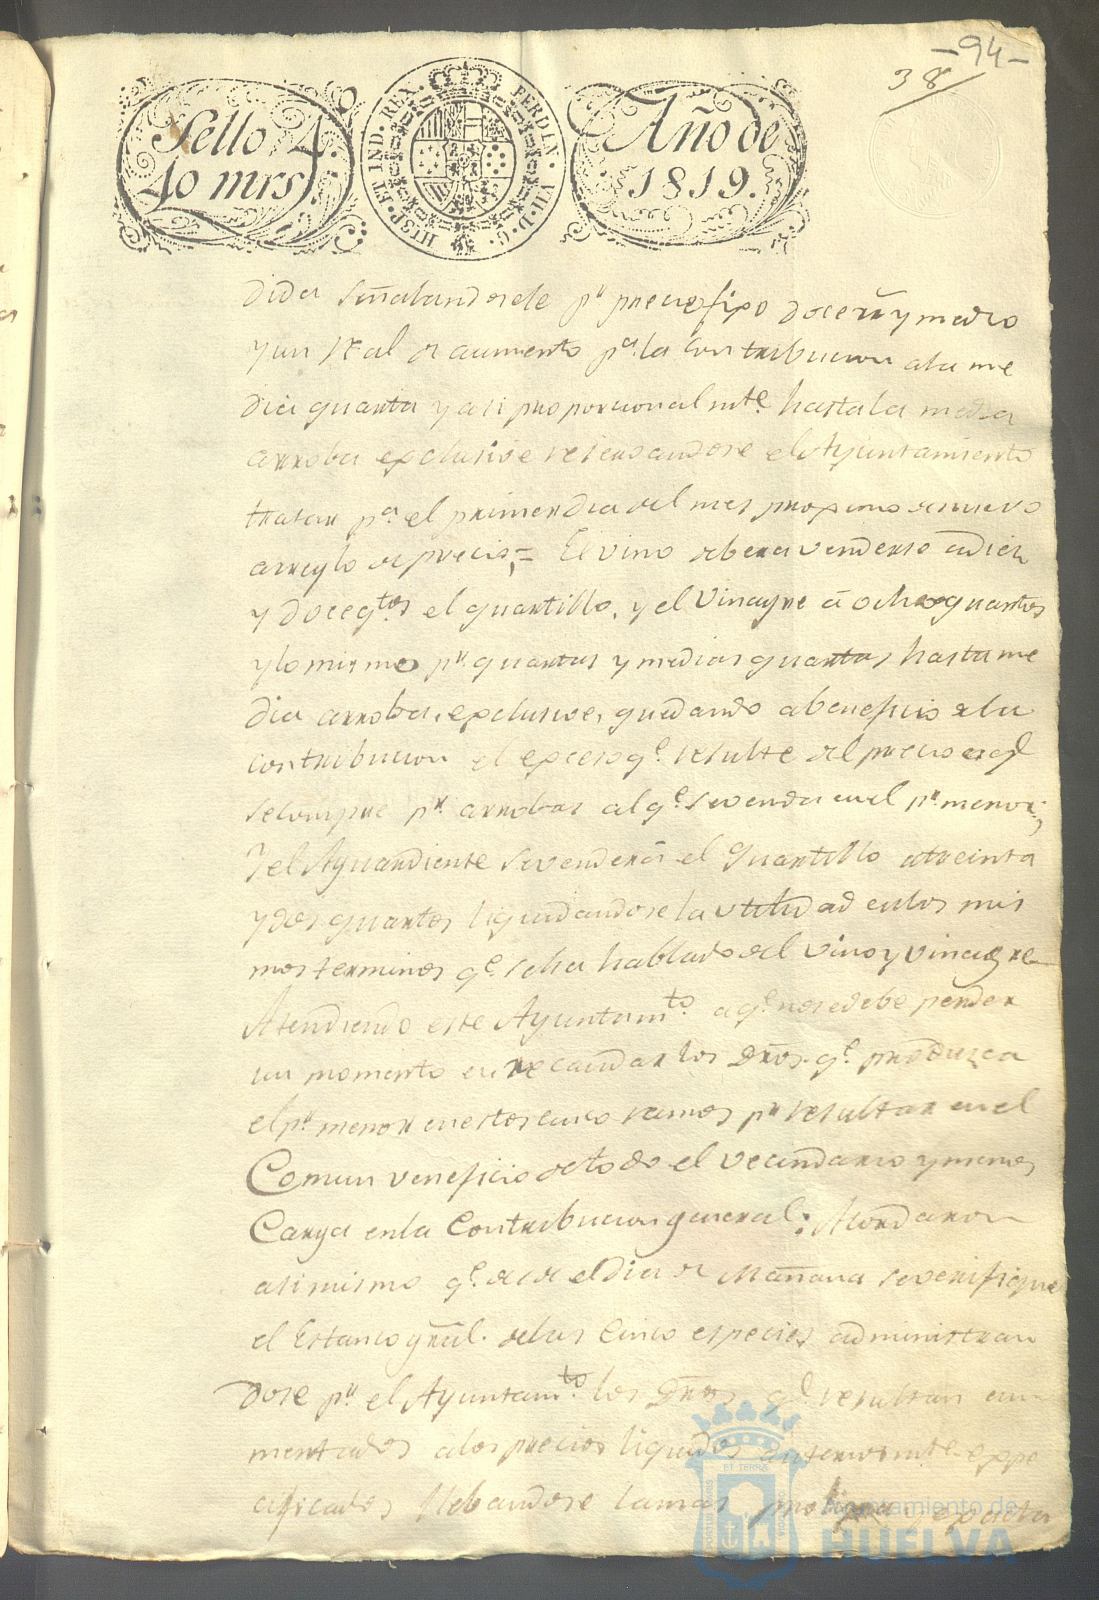 -94-
38
Sello 4.
40 mrs.
HISP. ET IND. REX. FERDIN. VII. D. G.
Año de
1819.
dida señalandosele pr. precio fijo doce rs y medio
y un Real de aumento pa. la Contribucion ala me
dia quarta y asi proporcionalmte. hasta la media
arroba exclusive reservandose el Ayuntamiento
tratar pa. el primer dia del mes proximo de nuevo
arreglo de precio; = El vino debera venderse à diez
y doce qtos el quartillo, y el Vinagre à ocho quartos
y lo mismo pr. quartas y medias quartas hasta me
dia arroba, exclusive, quedando a beneficio de la
contribucion el exceso qe. resulte del precio
se compre pr. arrobas al qe. se venda en el pr. menor;
Y el Aguardiente se venderà el Quartillo a treinta
y dos quartos liquidandose la utilidad en los mis
mos terminos qe. se ha hablado del vino y vinagre
Atendiendo este Ayuntamto. a qe. no se debe perder
un momento en recaudar los Dros. qe. produzca
el pr. menor en estos cinco ramos pr. resultar en el
Comun veneficio de todo el vecindario y menos
Carga en la Contribucion general: Acordaron
asimismo qe. desde el dia de Mañana se verifique
el Estanco gral. de las Cinco especies administran
dose pr. el Ayuntamto. los Dros. qe. resultan au
mentados a los precios liquidos anteriormte. espe
cificados llebandose la mas prolija y exacta
Ayuntamiento de
HUELVA